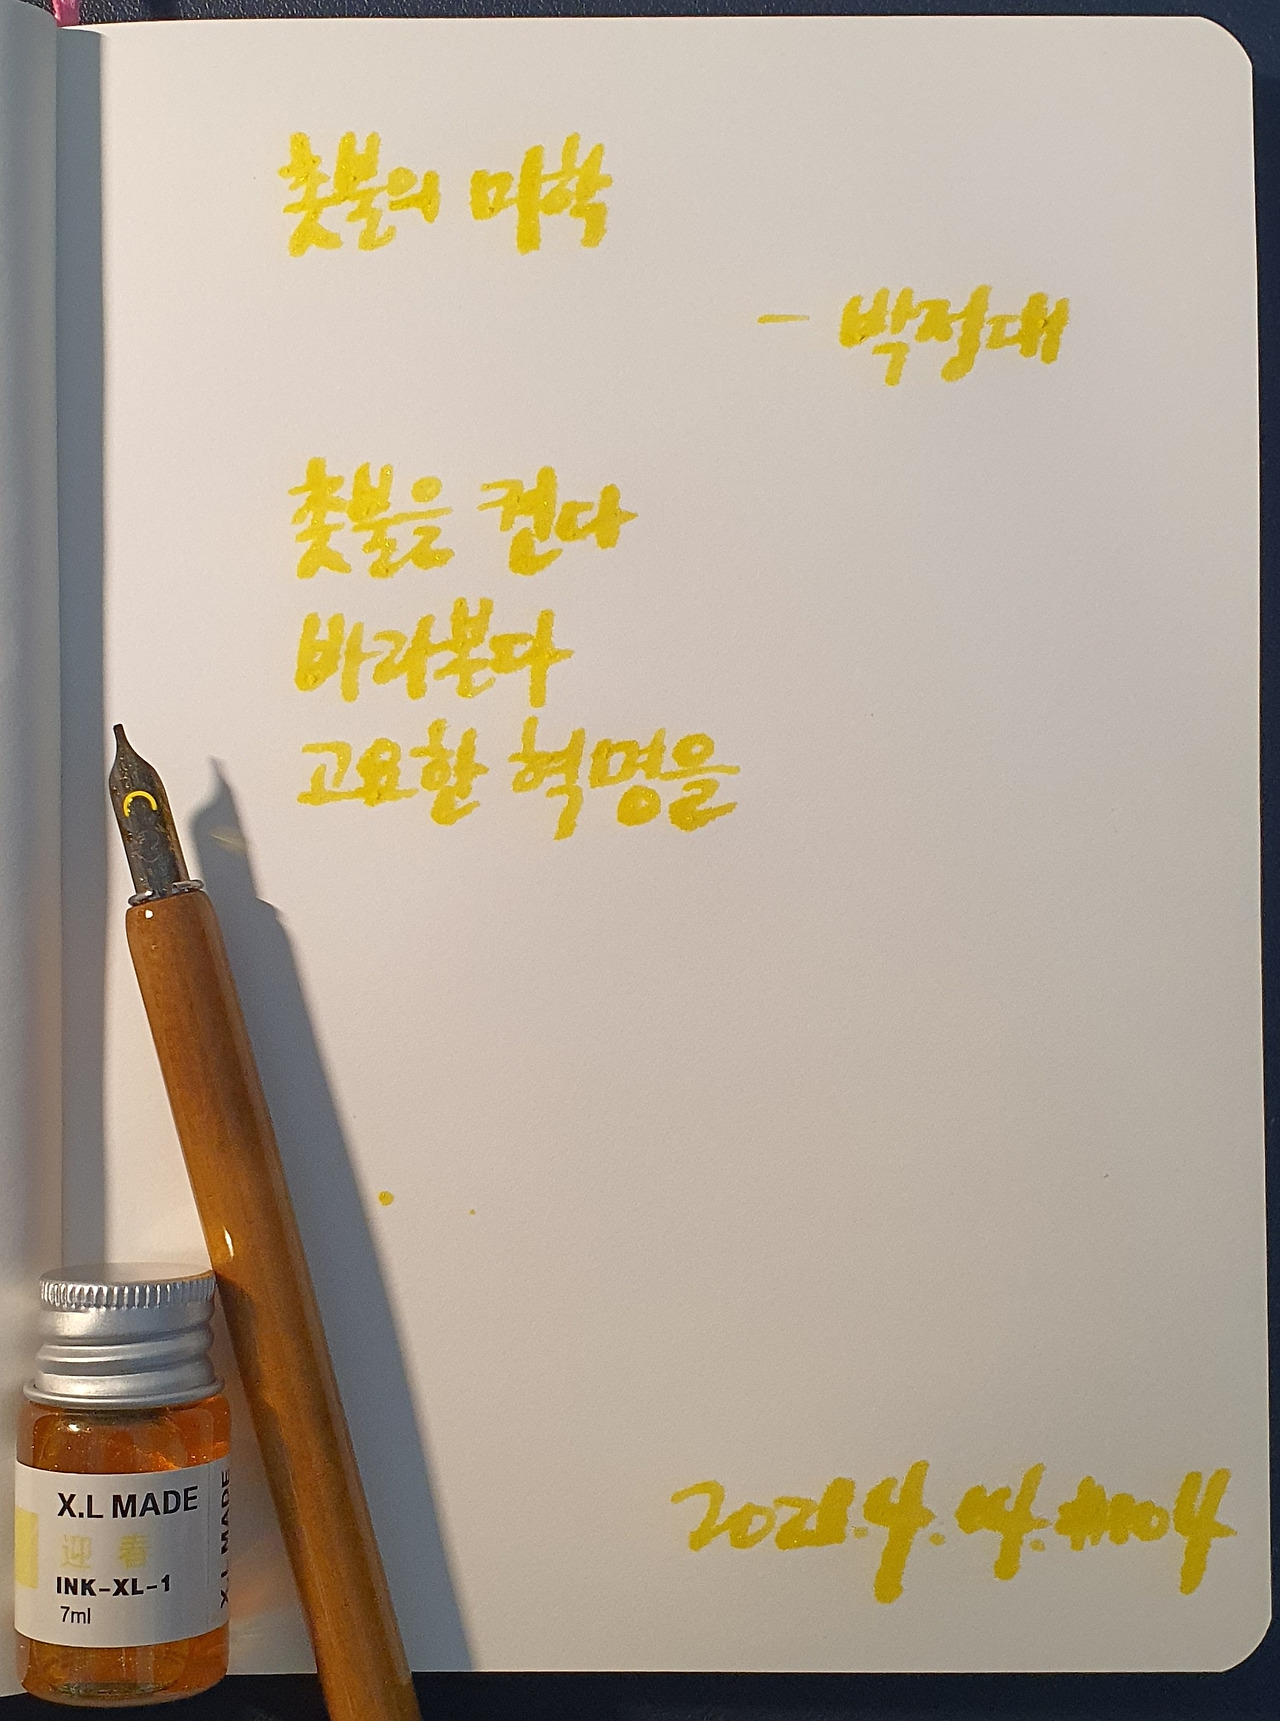 촛불의 미학
- 박정대
촛불을 켠다
바라본다
고요한 혁명을
2021.4.4. #104
X.L MADE
迎春
INK-XL-1
7ml
X.L MADE